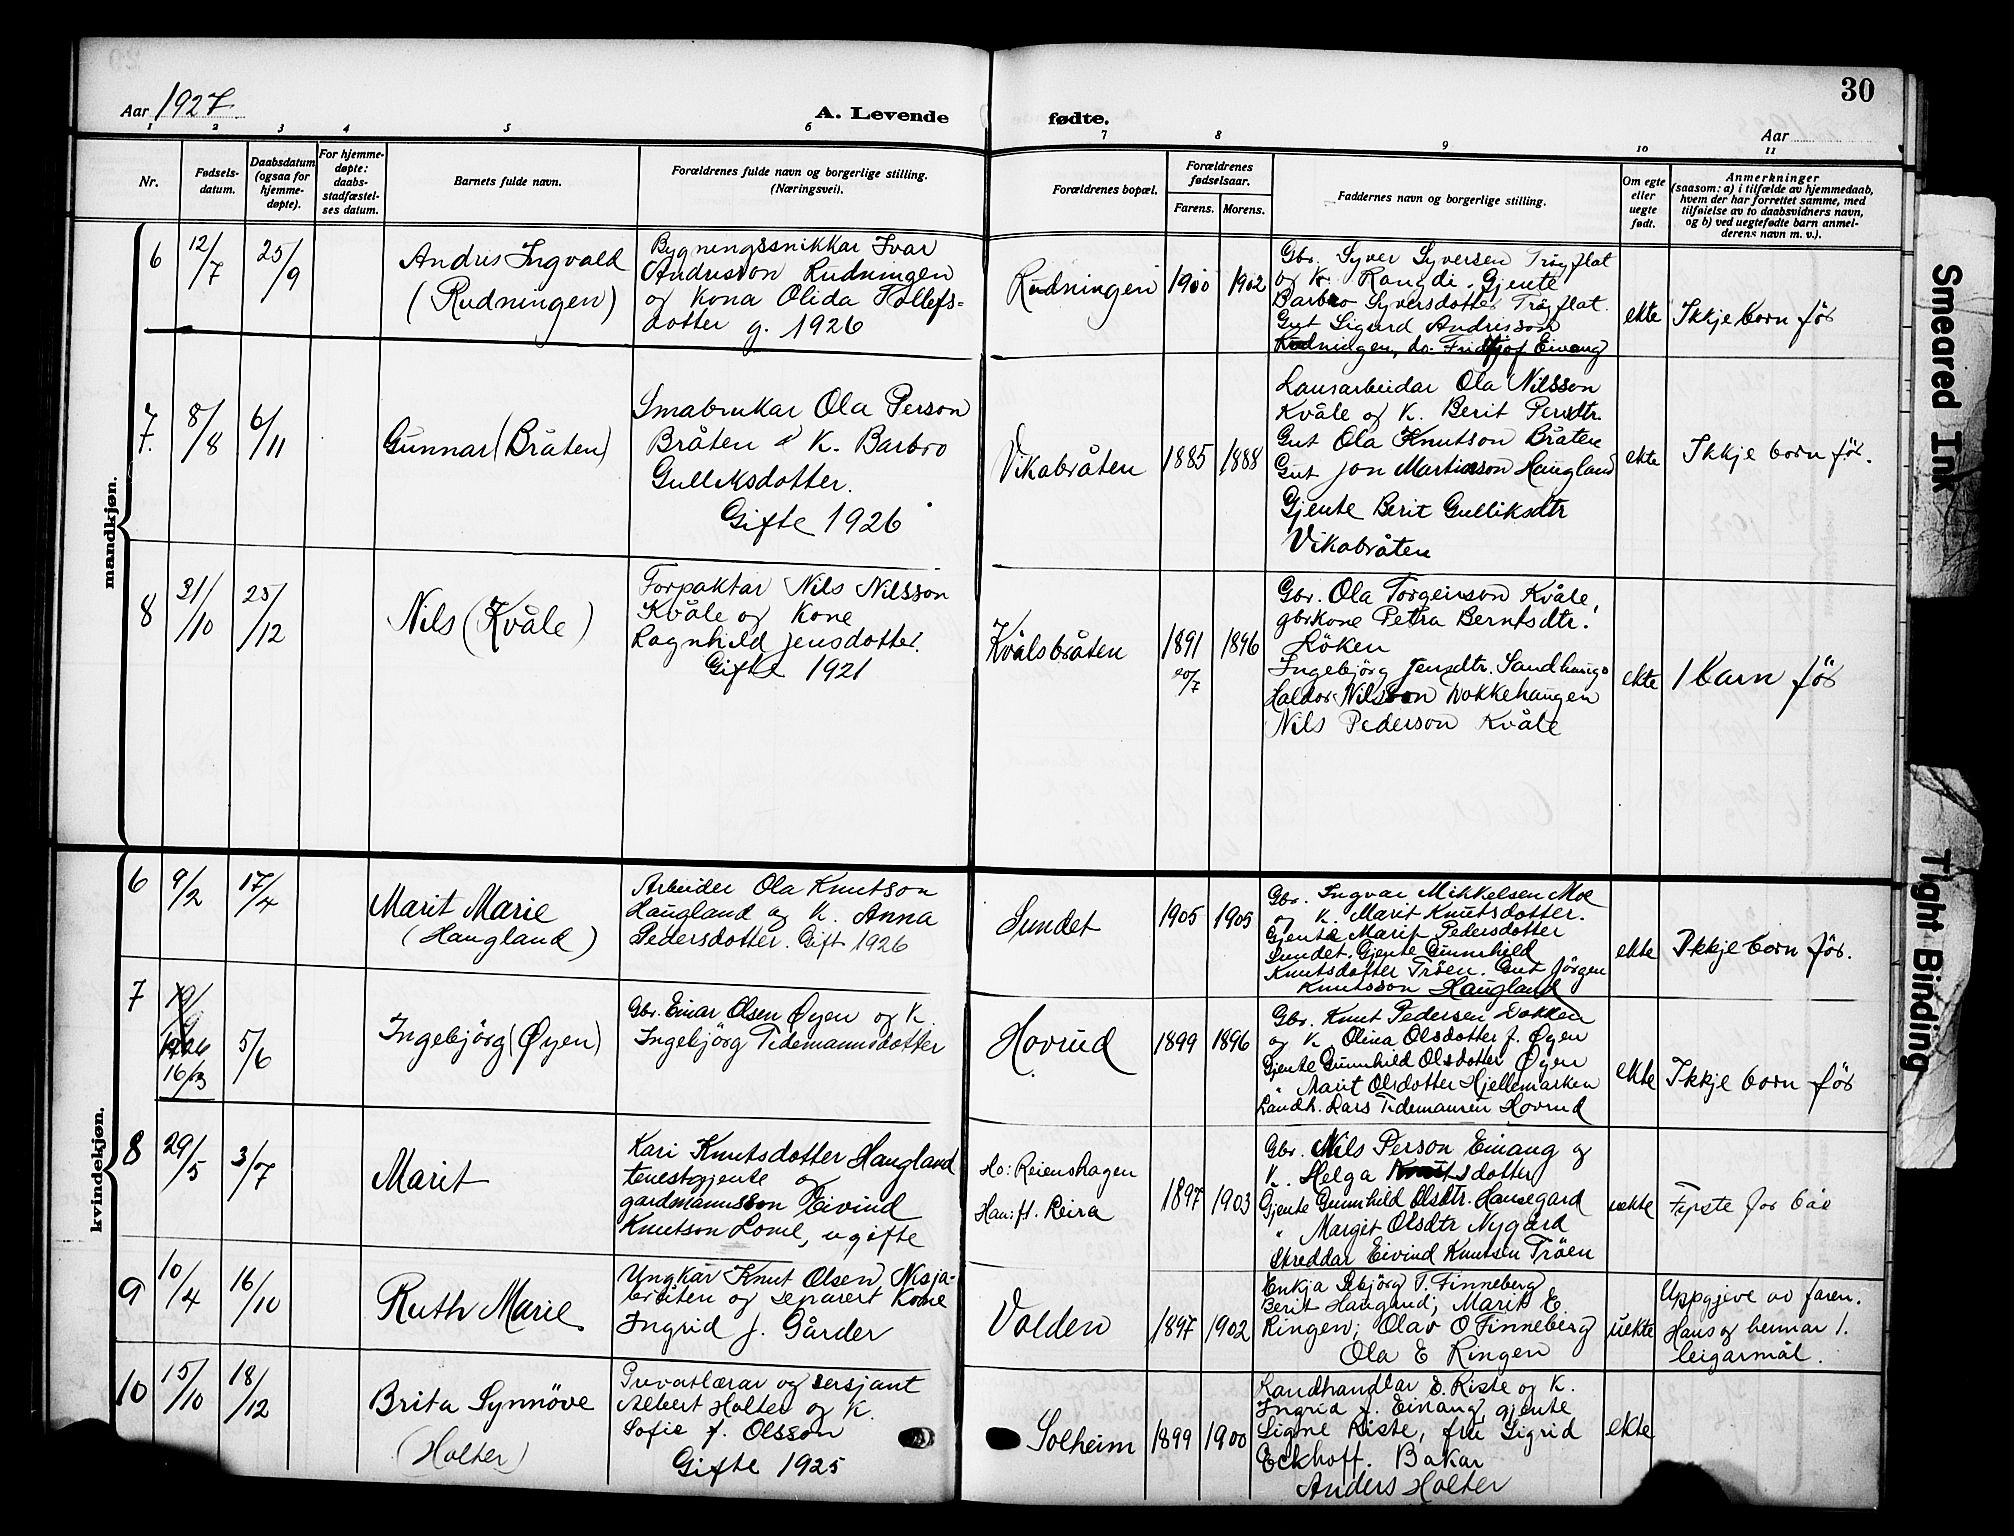 30
Aar 1927
A. Levende fødte.
Aar
1 2 3 4 5 6 7 8 9 10 11
Nr.
Fødsels-
datum.
Daabsdatum
(ogsaa for
hjemme-
døpte).
For hjemme-
døpte:
daabs-
stadfæstel-
ses datum.
Barnets fulde navn.
Forældrenes fulde navn og borgerlige stilling.
(Næringsvei).
Forældrenes bopæl.
Forældrenes
fødselsaar.
Farens. Morens.
Faddernes navn og borgerlige stilling.
Om egte
eller
uegte
født.
Anmerkninger
(saasom: a) i tilfælde av hjemmedaab,
hvem der har forrettet samme, med
tilføielse av to daabsvidners navn,
og b) ved uegtefødte barn anmel-
derens navn m. v.).
mandkjøn.
6
12/7
25/9
Andris Ingvald
(Rudningen)
Bygningssnikkar Ivar
Andrisson Rudningen
og Kona Olida Tollefs-
dotter g. 1926
Rudningen
1900
1902
Gbr. Syver Syversen Trøyflat
og K. Rangdi. Gjente
Barbro Syversdotter Trøyflat.
Gut Sigurd Andrisson
Rudningen, do. Fridtjof Eivang
ekte
Ikkje born før
7.
8/8
6/11
Gunnar (Bråten)
Småbrukar Ola Person
Bråten o K. Barbro
Gulliksdotter.
Gifte 1926
Vikabråten
1885
1888
Lausarbeidar Ola Nilsson
Kvåle og K. Berit Persdtr.
Gut Ola Knutson Bråten
Gut Jon Martinson Haugland
Gjente Berit Gulliksdtr
Vikabråten
ekte
Ikkje born før.
8
31/10
25/12
Nils (Kvåle)
Forpaktar Nils Nilsson
Kvåle og Kone
Ragnhild Jensdotter.
Gifte 1921
Kvålsbråten
1891
20/7
1896
Gbr. Ola Torgeirson Kvåle,
gbrkone Petra Berntsdtr.
Løken
Ingebjørg Jensdtr. Sandhaug
Haldor Nilsson Wokkehaugen
Nils Pederson Kvåle
ekte
1 barn før
kvindekjøn.
6
9/2
17/4
Marit Marie
(Haugland)
Arbeider Ola Knutson
Haugland og K. Anna
Pedersdotter. Gift 1926
Sundet
1905
1905
Gbr. Ingvar Mikkelsen Moe
og K. Marit Knutsdotter.
Gjente Marit Pedersdotter
Sundet. Gjente Gunnhild
Knutsdotter Trøen. Gut Jørgen
Knutsson Haugland
ekte
Ikkje born før.
7
1926
16/12
5/6
Ingebjørg (Øyen)
Gbr. Einar Olsen Øyen og K.
Ingebjørg Tidemannsdotter
Hovrud
1899
1896
Gbr. Knut Pedersen Vokken
og K. Olina Olsdotter f. Øyen
Gjente Gunnhild Olsdotter Øyen
" Marit Olsdotter Hjellemarken
Landh. Lars Tidemansen Hovrud
ekte
Ikkje born før
8
29/5
3/7
Marit
Kari Knutsdotter Haugland
tenestgjente og
gardmannsson Eivind
Knutson Lome, ugifte
Ho: Reienshagen
Han: ft. Reira
1897
1903
Gbr. Nils Person Einang og
K. Helga Knutsdotter
Gjente Gunnhild Olsdtr. Hansegard
" Margit Olsdtr Nygard
Skreddar Eivind Knutsen Trøen
uekte
Fyrste for båe
9
10/4
16/10
Ruth Marie
Ungkar Knut Olsen Nisja-
bråten og separert Kone
Ingrid f. Gårder
Volden
1897
1902
Enkja Sebjørg T. Finneberg
Berit Haugland; Marit E.
Ringen; Olav O Finneberg
Ola E Ringen
uekte
Uppgjeve av faren.
Hans og hennar 1.
leigarmål.
10
15/10
18/12
Brita Synnøve
(Holter)
Privatlærar og sersjant
Albert Holter og K.
Sofie f. Olsson
Gifte 1925
Solheim
1899
1900
Landhandlar E. Riste og K.
Ingrid f. Einang, gjente
Signe Riste, frk Sigrid
Eckhoff. Bakar
Anders Holter
ekte
Smeared Ink
Tight Binding